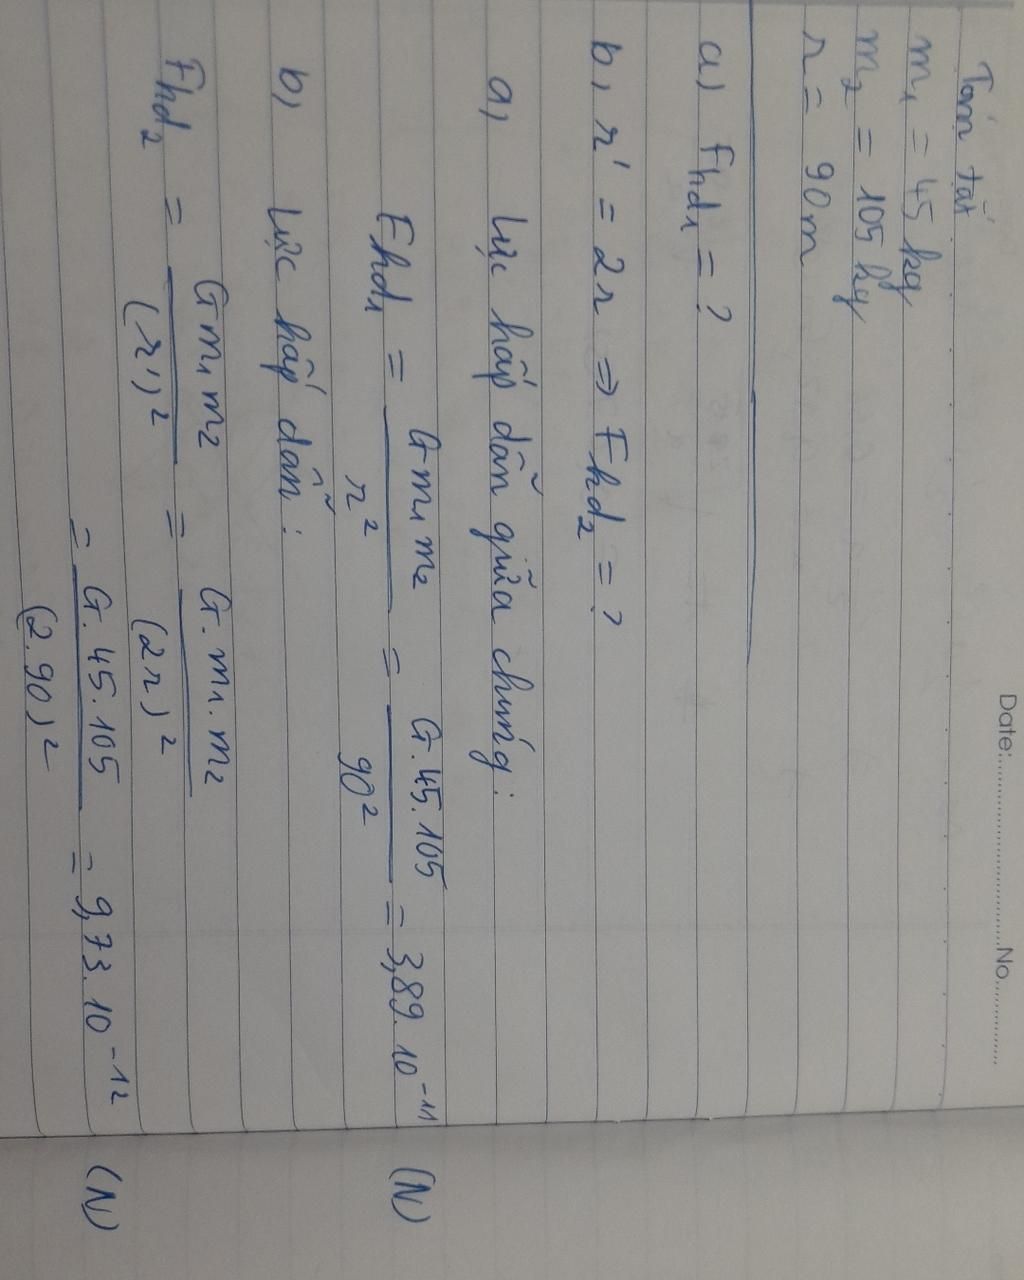 Date:........................No.............
Tóm tắt
m₁ = 45 kg
m₂ = 105 kg
r = 90m
a) Fhd₁ = ?
b, r' = 2r ⇒ Fhd₂ = ?
a, Lực hấp dẫn giữa chúng:
Fhd₁ = G m₁ m₂ / r² = G.45.105 / 90² = 3,89.10⁻¹¹ (N)
b) Lực hấp dẫn:
Fhd₂ = G m₁ m₂ / (r')² = G.m₁.m₂ / (2r)²
= G.45.105 / (2.90)² = 9,73.10⁻¹² (N)